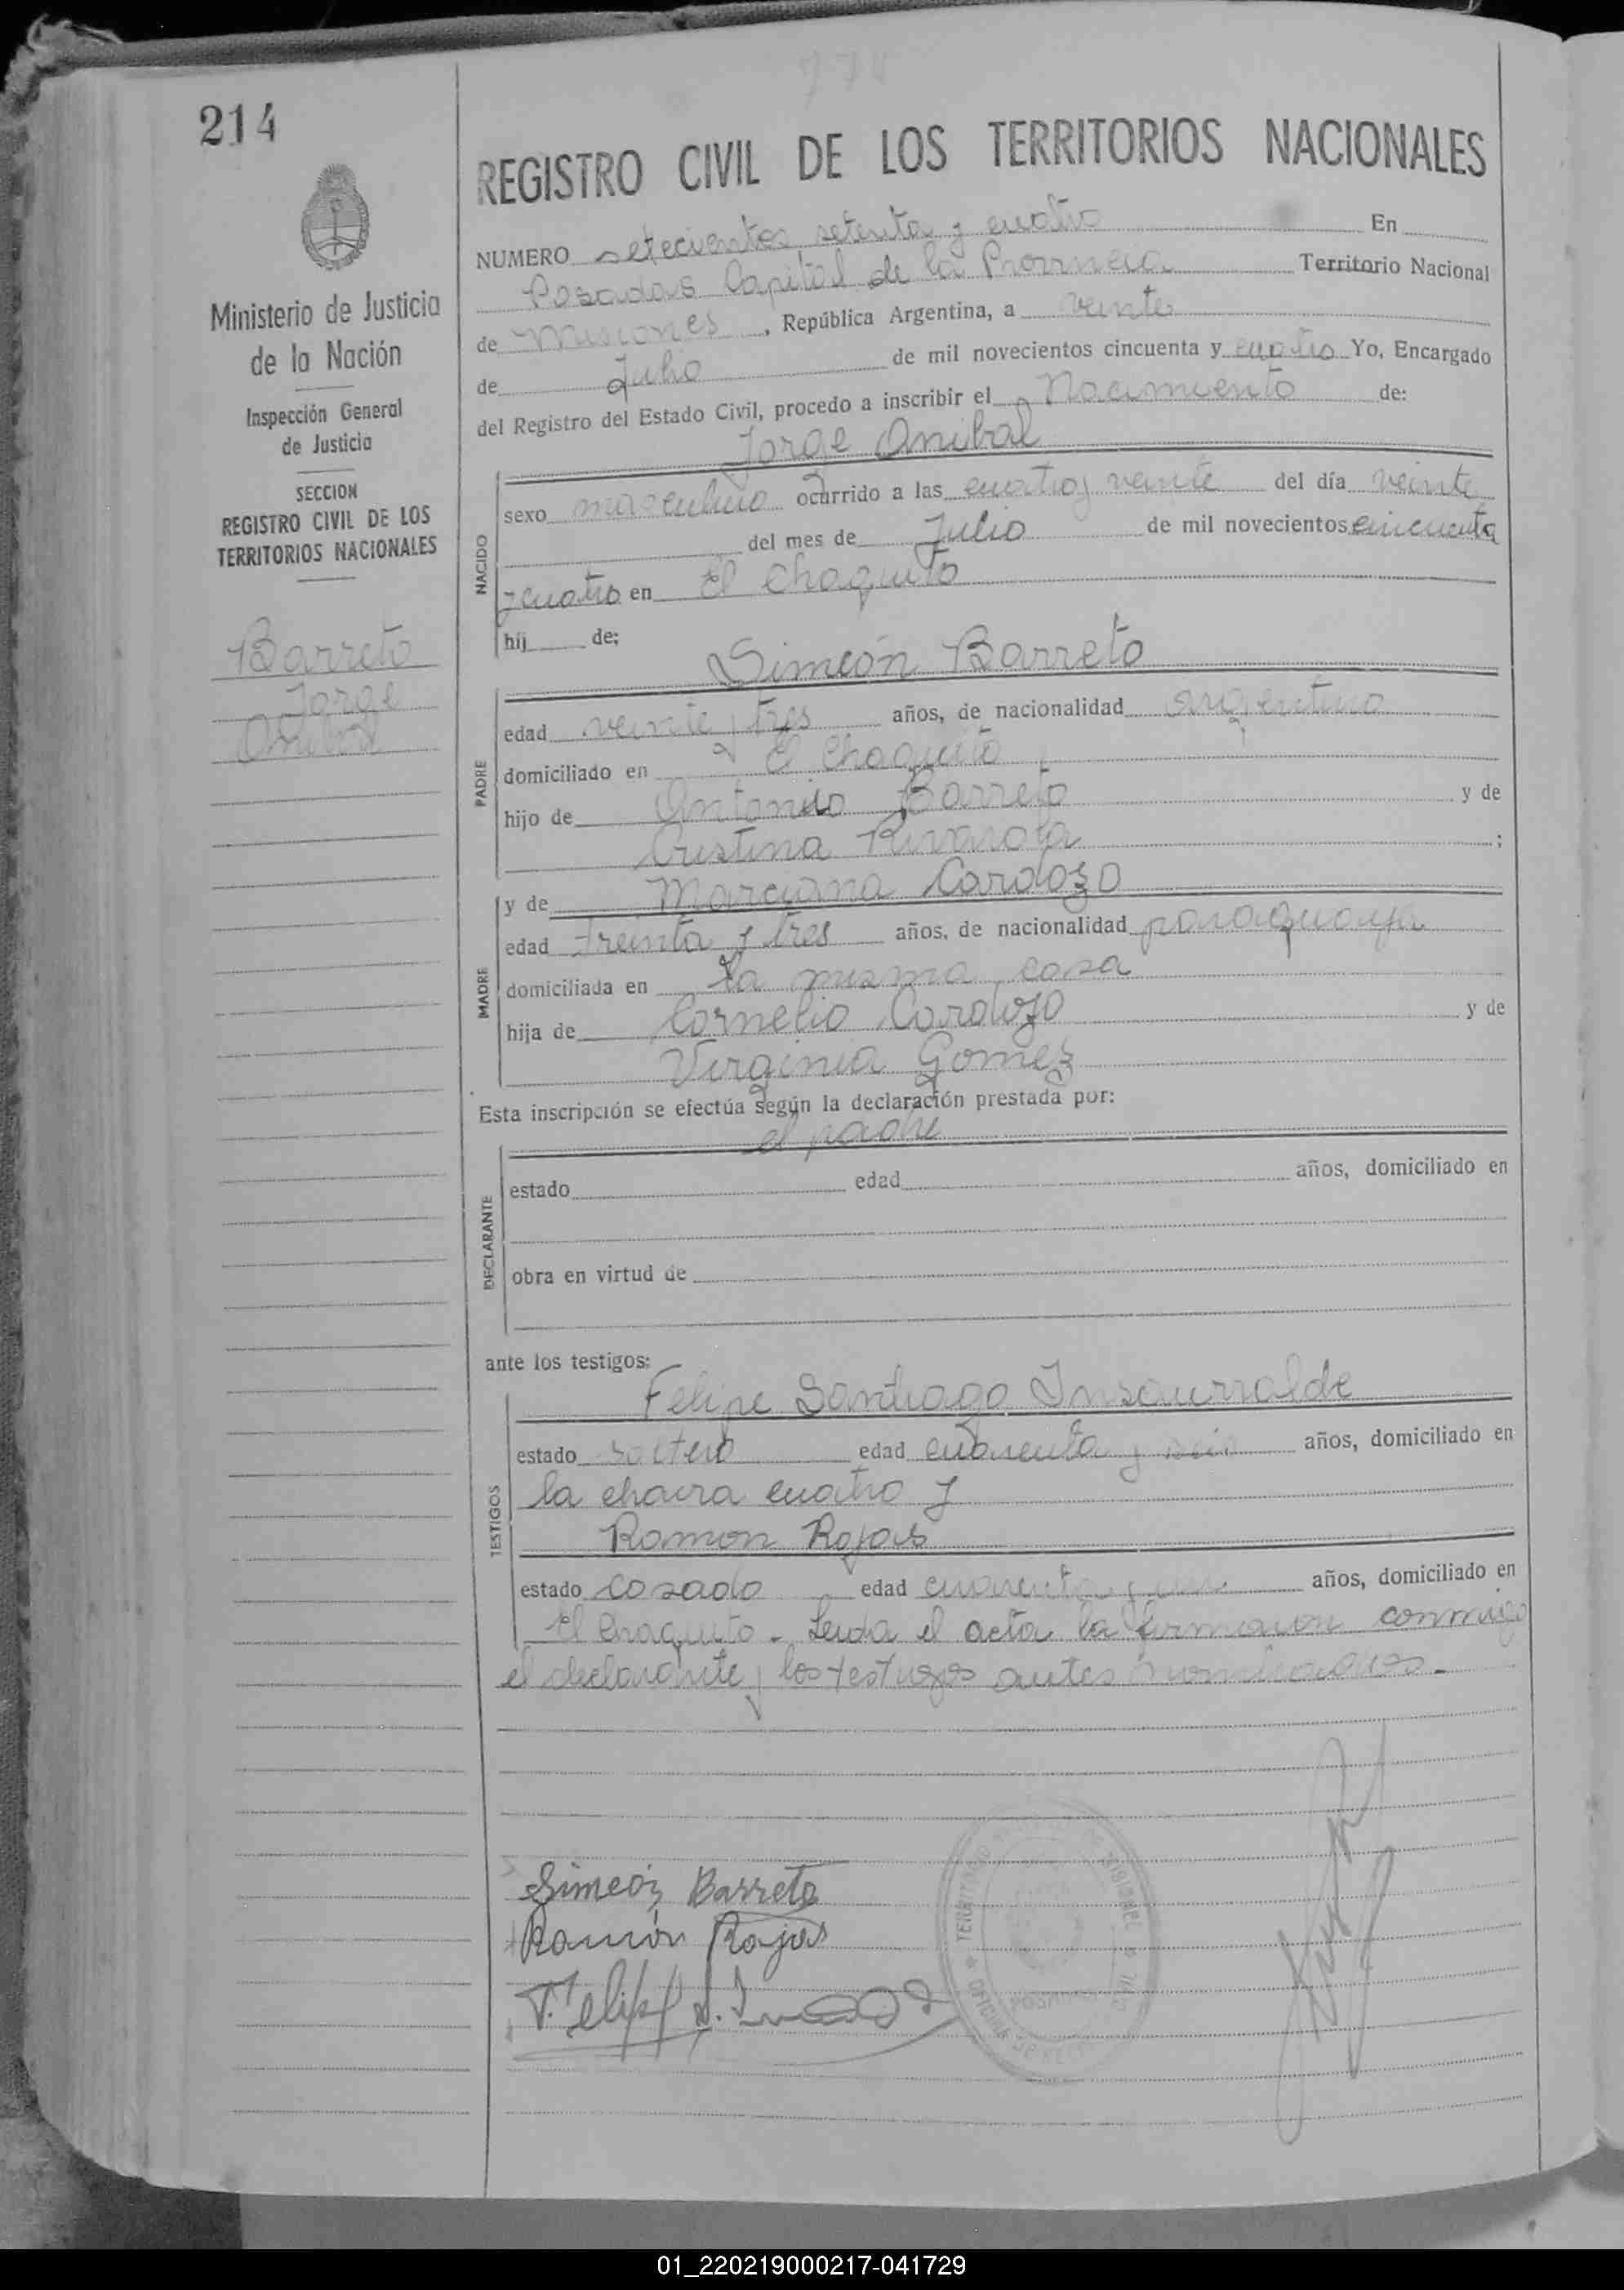 774
214
REGISTRO CIVIL DE LOS TERRITORIOS NACIONALES
NUMERO setecientos setenta y cuatro En
Posadas Capital de la Provincia Territorio Nacional
de Misiones, República Argentina, a veinte
de Julio de mil novecientos cincuenta y cuatro Yo, Encargado
del Registro del Estado Civil, procedo a inscribir el Nacimiento de:
Jorge Anibal
Ministerio de Justicia
de la Nación
Inspección General
de Justicia
SECCION
REGISTRO CIVIL DE LOS
TERRITORIOS NACIONALES
Barreto
Jorge
Anibal
NACIDO
sexo masculino ocurrido a las cuatro y veinte del día veinte
del mes de Julio de mil novecientos cincuenta
y cuatro en El Chaquito
hij de:
Simeón Barreto
PADRE
edad veinte y tres años, de nacionalidad argentino
domiciliado en El Chaquito
hijo de Antonio Barreto y de
Cristina Rivarola ;
MADRE
y de Marciana Cardozo
edad treinta y tres años, de nacionalidad paraguaya
domiciliada en la misma casa
hija de Cornelio Cardozo y de
Virginia Gomez
Esta inscripción se efectúa según la declaración prestada por:
el padre
DECLARANTE
estado edad años, domiciliado en
obra en virtud de
ante los testigos:
Felipe Santiago Insaurralde
TESTIGOS
estado soltero edad cuarenta y seis años, domiciliado en
la chacra cuatro y
Ramon Rojas
estado casado edad cuarenta y años, domiciliado en
El Chaquito - Leida el acta la firmaron conmigo
el declarante y los testigos antes nombrados.-
Simeón Barreto
Ramón Rojas
Felipe S.
POSADAS
01_220219000217-041729